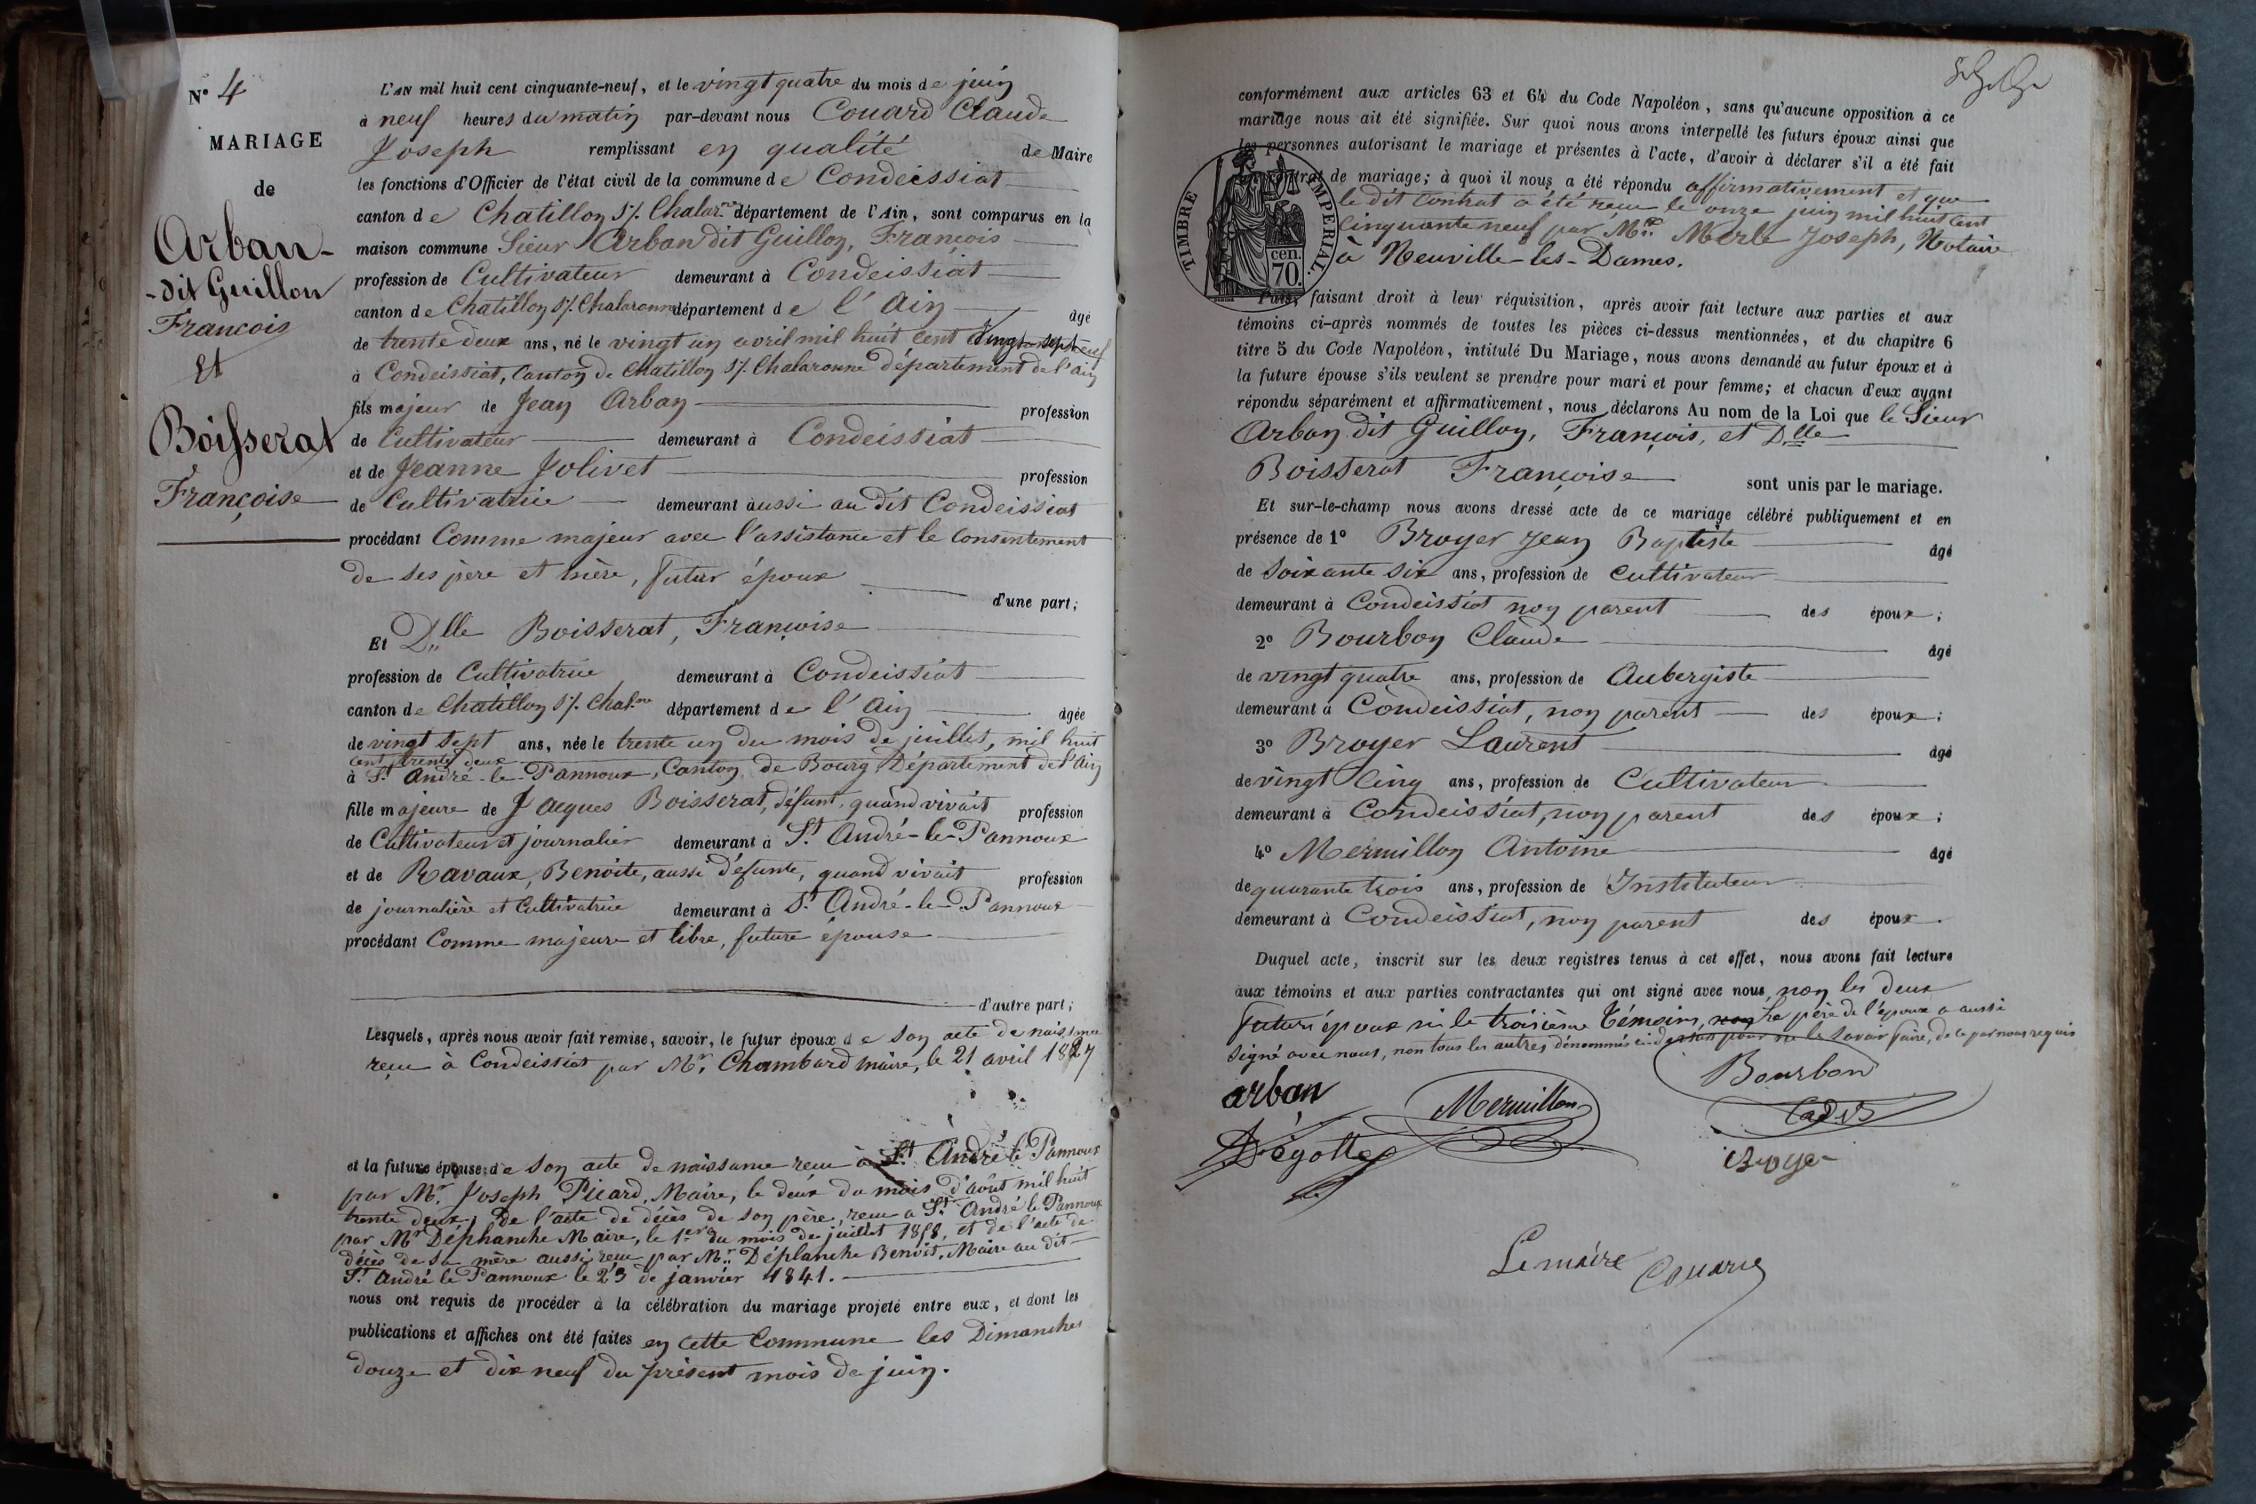 N° 4
MARIAGE
de
Arban-
-dit Guillon
François
Et
Boisserat
Françoise
L'AN mil huit cent cinquante-neuf, et le vingt quatre du mois de juin
à neuf heures du matin par-devant nous Couard Claude
Joseph remplissant en qualité de Maire
les fonctions d'Officier de l'état civil de la commune de Condeissiat
canton de Chatillon s/. Chalar.ne département de l'Ain, sont comparus en la
maison commune Sieur Arban dit Guillon, François
profession de Cultivateur demeurant à Condeissiat
canton de Chatillon s/. Chalaronne département de l'Ain âgé
de trente deux ans, né le vingt un avril mil huit cent vingt sept
à Condeissiat, Canton de Chatillon s/. Chalaronne département de l'Ain
fils majeur de Jean Arban profession
de Cultivateur demeurant à Condeissiat
et de Jeanne Jolivet profession
de Cultivatrice demeurant aussi au dit Condeissiat
procédant Comme majeur avec l'assistance et le consentement
de ses père et mère, futur époux
d'une part;
Et Dlle Boisserat, Françoise
profession de Cultivatrice demeurant à Condeissiat
canton de Chatillon s/. Chal.ne département de l'Ain âgée
de vingt sept ans, née le trente un du mois de juillet, mil huit
cent trente deux
à St. André-le-Pannoux, Canton de Bourg Département de l'Ain
fille majeure de Jacques Boisserat, défunt, quand vivait profession
de Cultivateur et journalier demeurant à St. André-le-Pannoux
et de Ravaux, Benoite, aussi défunte, quand vivait profession
de journalière et Cultivatrice demeurant à St. André-le-Pannoux
procédant Comme majeure et libre, future épouse
d'autre part;
Lesquels, après nous avoir fait remise, savoir, le futur époux de son acte de naissance
reçu à Condeissiat par Mr. Chambard maire, le 21 avril 1827
et la future épouse: de son acte de naissance reçu à St. André le Pannoux
par Mr. Joseph Picard, Maire, le deux du mois d'août mil huit
trente deux, de l'acte de décès de son père, reçu à St. André le Pannoux
par Mr Déphanche Maire, le 1er du mois de juillet 1858, et de l'acte de
décès de sa mère aussi reçu par Mr. Déplanche Benoit, Maire au dit
St. André le Pannoux le 23 de janvier 1841.
nous ont requis de procéder à la célébration du mariage projeté entre eux, et dont les
publications et affiches ont été faites en cette Commune les Dimanches
douze et dix neuf du présent mois de juin.
conformément aux articles 63 et 64 du Code Napoléon, sans qu'aucune opposition à ce
mariage nous ait été signifiée. Sur quoi nous avons interpellé les futurs époux ainsi que
les personnes autorisant le mariage et présentes à l'acte, d'avoir à déclarer s'il a été fait
contrat de mariage; à quoi il nous a été répondu affirmativement et que
le dit contrat a été reçu le onze juin mil huit cent
cinquante neuf par Mtre Merle Joseph, Notaire
à Neuville-les-Dames.
TIMBRE IMPÉRIAL.
cen.
70.
Puis, faisant droit à leur réquisition, après avoir fait lecture aux parties et aux
témoins ci-après nommés de toutes les pièces ci-dessus mentionnées, et du chapitre 6
titre 5 du Code Napoléon, intitulé Du Mariage, nous avons demandé au futur époux et à
la future épouse s'ils veulent se prendre pour mari et pour femme; et chacun d'eux ayant
répondu séparément et affirmativement, nous déclarons Au nom de la Loi que le Sieur
Arban dit Guillon, François, et Dlle
Boisserat Françoise sont unis par le mariage.
Et sur-le-champ nous avons dressé acte de ce mariage célébré publiquement et en
présence de 1° Broyer Jean Baptiste âgé
de soixante six ans, profession de cultivateur
demeurant à Condeissiat non parent des époux;
2° Bourbon Claude âgé
de vingt quatre ans, profession de Aubergiste
demeurant à Condeissiat, non parent des époux;
3° Broyer Laurent âgé
de vingt cinq ans, profession de Cultivateur
demeurant à Condeissiat, non parent des époux;
4° Mermillon Antoine âgé
de quarante trois ans, profession de Instituteur
demeurant à Condeissiat, non parent des époux.
Duquel acte, inscrit sur les deux registres tenus à cet effet, nous avons fait lecture
aux témoins et aux parties contractantes qui ont signé avec nous, non les deux
futurs époux ni le troisième témoins, non le père de l'époux a aussi
signé avec nous, non tous les autres dénommés ci-dessus pour ne le savoir faire, de ce par nous requis
arban Mermillon Bourbon
Cadet
Dégottex Broyer
Le maire Couard